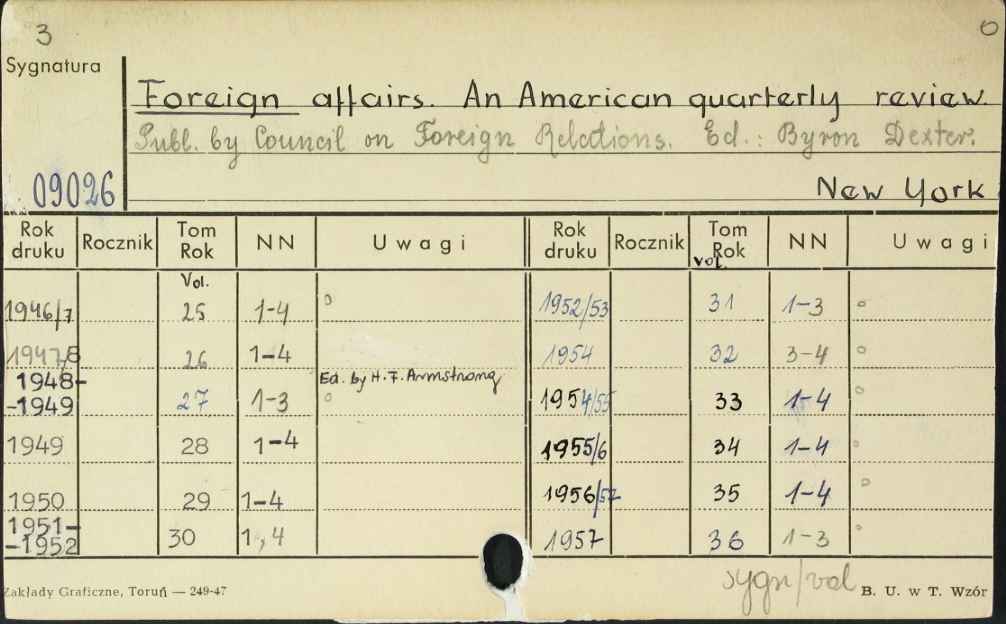 3
o
Sygnatura
Foreign affairs. An American quarterly review.
Publ. by Council on Foreign Relations. Ed.: Byron Dexter.
09026
New York
Rok druku Rocznik Tom Rok NN Uwagi Rok druku Rocznik Tom vol. Rok NN Uwagi
Vol.
1946/7 25 1-4 o 1952/53 31 1-3 o
1947/8 26 1-4 1954 32 3-4 o
Ed. by H. F. Armstrong
1948-
-1949 27 1-3 o 1954/55 33 1-4 o
1949 28 1-4 1955/6 34 1-4 o
1950 29 1-4 1956/57 35 1-4 o
1951-
-1952 30 1, 4 1957 36 1-3 o
sygn/vol
Zakłady Graficzne, Toruń — 249-47 B. U. w T. Wzór